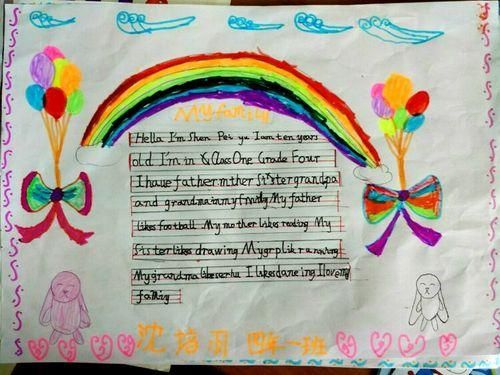 My family
Hella I'm Shen Pei yu I am ten years
old I'm in Class One Grade Four
I have father mther sister grandpa
and grandma in my family My father
likes football My mother likes reading My
sister likes drawing My grp lik running
My grandma like I likes dancing I love my
family
沈培 四年一班